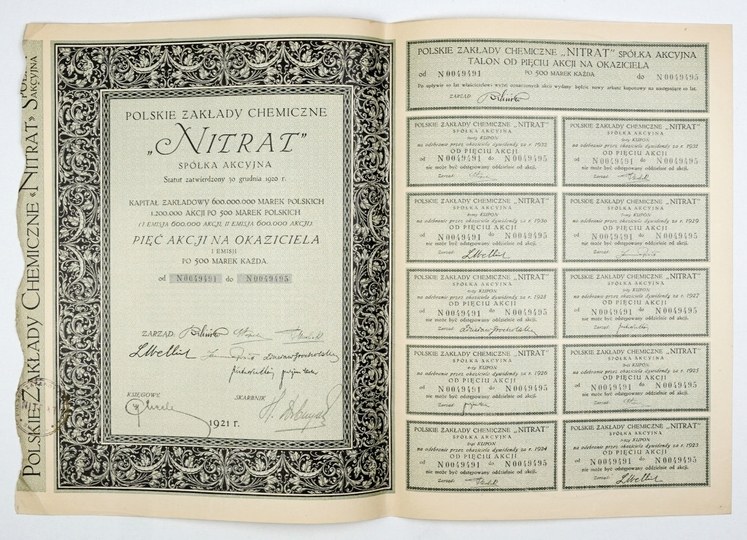 POLSKIE ZAKŁADY CHEMICZNE «NITRAT» SPÓŁKA AKCYJNA
POLSKIE ZAKŁADY CHEMICZNE
„NITRAT”
SPÓŁKA AKCYJNA
Statut zatwierdzony 30 grudnia 1920 r.
KAPITAŁ ZAKŁADOWY 600.000.000 MAREK POLSKICH
1.200.000 AKCJI PO 500 MAREK POLSKICH
(I EMISJA 600.000 AKCJI, II EMISJA 600.000 AKCJI)
PIĘĆ AKCJI NA OKAZICIELA
I EMISJI
PO 500 MAREK KAŻDA.
od N 0049491 do N 0049495
ZARZĄD:
KSIĘGOWY
SKARBNIK
1921 r.
POLSKIE ZAKŁADY CHEMICZNE „NITRAT” SPÓŁKA AKCYJNA
TALON OD PIĘCIU AKCJI NA OKAZICIELA
od N 0049491 PO 500 MAREK KAŻDA. do N 0049495
ZARZĄD:
POLSKIE ZAKŁADY CHEMICZNE „NITRAT”
SPÓŁKA AKCYJNA
KUPON
na odebranie przez okaziciela dywidendy za r. 1932
OD PIĘCIU AKCJI
od N 0049491 do N 0049495
nie może być odstępowany oddzielnie od akcji.
Zarząd:
POLSKIE ZAKŁADY CHEMICZNE „NITRAT”
SPÓŁKA AKCYJNA
KUPON
na odebranie przez okaziciela dywidendy za r. 1931
OD PIĘCIU AKCJI
od N 0049491 do N 0049495
nie może być odstępowany oddzielnie od akcji.
Zarząd:
POLSKIE ZAKŁADY CHEMICZNE „NITRAT”
SPÓŁKA AKCYJNA
KUPON
na odebranie przez okaziciela dywidendy za r. 1930
OD PIĘCIU AKCJI
od N 0049491 do N 0049495
nie może być odstępowany oddzielnie od akcji.
Zarząd:
POLSKIE ZAKŁADY CHEMICZNE „NITRAT”
SPÓŁKA AKCYJNA
KUPON
na odebranie przez okaziciela dywidendy za r. 1929
OD PIĘCIU AKCJI
od N 0049491 do N 0049495
nie może być odstępowany oddzielnie od akcji.
Zarząd:
POLSKIE ZAKŁADY CHEMICZNE „NITRAT”
SPÓŁKA AKCYJNA
KUPON
na odebranie przez okaziciela dywidendy za r. 1928
OD PIĘCIU AKCJI
od N 0049491 do N 0049495
nie może być odstępowany oddzielnie od akcji.
Zarząd:
POLSKIE ZAKŁADY CHEMICZNE „NITRAT”
SPÓŁKA AKCYJNA
KUPON
na odebranie przez okaziciela dywidendy za r. 1927
OD PIĘCIU AKCJI
od N 0049491 do N 0049495
nie może być odstępowany oddzielnie od akcji.
Zarząd:
POLSKIE ZAKŁADY CHEMICZNE „NITRAT”
SPÓŁKA AKCYJNA
KUPON
na odebranie przez okaziciela dywidendy za r. 1926
OD PIĘCIU AKCJI
od N 0049491 do N 0049495
nie może być odstępowany oddzielnie od akcji.
Zarząd:
POLSKIE ZAKŁADY CHEMICZNE „NITRAT”
SPÓŁKA AKCYJNA
KUPON
na odebranie przez okaziciela dywidendy za r. 1925
OD PIĘCIU AKCJI
od N 0049491 do N 0049495
nie może być odstępowany oddzielnie od akcji.
Zarząd:
POLSKIE ZAKŁADY CHEMICZNE „NITRAT”
SPÓŁKA AKCYJNA
KUPON
na odebranie przez okaziciela dywidendy za r. 1924
OD PIĘCIU AKCJI
od N 0049491 do N 0049495
nie może być odstępowany oddzielnie od akcji.
Zarząd:
POLSKIE ZAKŁADY CHEMICZNE „NITRAT”
SPÓŁKA AKCYJNA
KUPON
na odebranie przez okaziciela dywidendy za r. 1923
OD PIĘCIU AKCJI
od N 0049491 do N 0049495
nie może być odstępowany oddzielnie od akcji.
Zarząd: